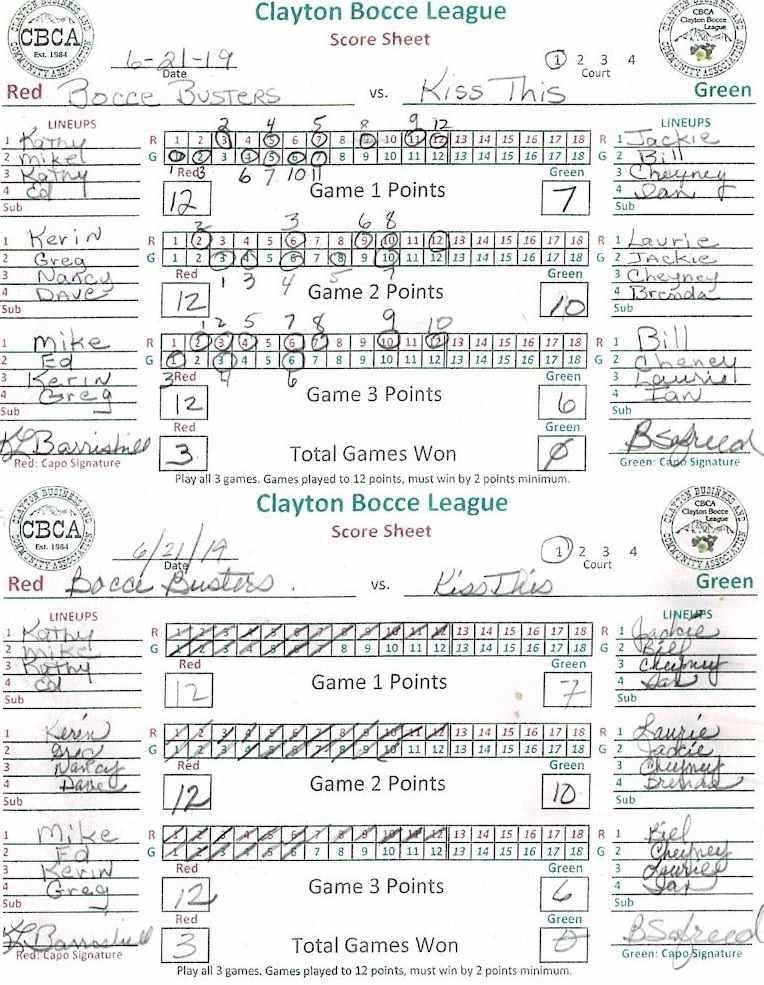 Clayton Bocce League
Score Sheet
CBCA
Est. 1984
CBCA
Clayton Bocce
League
6-21-19
Date
1 2 3 4
Court
Red Bocce Busters vs. Kiss This Green
LINEUPS LINEUPS
3 4 5 8 9 12
1 Kathy R 1 2 3 4 5 6 7 8 9 10 11 12 13 14 15 16 17 18 R 1 Jackie
2 Mikel G 1 2 3 4 5 6 7 8 9 10 11 12 13 14 15 16 17 18 G 2 Bill
3 Kathy 1 Red 3 6 7 10 11 Green 3 Cheyney
4 Ed 12 Game 1 Points 7 4 Ian
Sub Sub
2 3 6 8
1 Kevin R 1 2 3 4 5 6 7 8 9 10 11 12 13 14 15 16 17 18 R 1 Laurie
2 Greg G 1 2 3 4 5 6 7 8 9 10 11 12 13 14 15 16 17 18 G 2 Jackie
3 Nancy Red 1 3 4 5 7 Green 3 Cheyney
4 Dave 12 Game 2 Points 10 4 Brenda
Sub Sub
1 2 5 7 8 9 10
1 Mike R 1 2 3 4 5 6 7 8 9 10 11 12 13 14 15 16 17 18 R 1 Bill
2 Ed G 1 2 3 4 5 6 7 8 9 10 11 12 13 14 15 16 17 18 G 2 Cheney
3 Kevin 3 Red 4 6 Green 3 Laurie
4 Greg 12 Game 3 Points 6 4 Ian
Sub Red Green Sub
3 Total Games Won 0
Red: Capo Signature Green: Capo Signature
Play all 3 games. Games played to 12 points, must win by 2 points minimum.
Clayton Bocce League
Score Sheet
CBCA
Est. 1984
CBCA
Clayton Bocce
League
6/21/19
Date
1 2 3 4
Court
Red Bocce Busters. vs. Kiss This Green
LINEUPS LINEUPS
1 Kathy R 1 2 3 4 5 6 7 8 9 10 11 12 13 14 15 16 17 18 R 1 Jackie
2 Mikel G 1 2 3 4 5 6 7 8 9 10 11 12 13 14 15 16 17 18 G 2 Bill
3 Kathy Red Green 3 Cheyney
4 Ed 12 Game 1 Points 7 4 Ian
Sub Sub
1 Kevin R 1 2 3 4 5 6 7 8 9 10 11 12 13 14 15 16 17 18 R 1 Laurie
2 Greg G 1 2 3 4 5 6 7 8 9 10 11 12 13 14 15 16 17 18 G 2 Jackie
3 Nancy Red Green 3 Cheyney
4 Dave 12 Game 2 Points 10 4 Brenda
Sub Sub
1 Mike R 1 2 3 4 5 6 7 8 9 10 11 12 13 14 15 16 17 18 R 1 Bill
2 Ed G 1 2 3 4 5 6 7 8 9 10 11 12 13 14 15 16 17 18 G 2 Cheyney
3 Kevin Red Green 3 Laurie
4 Greg 12 Game 3 Points 6 4 Ian
Sub Red Green Sub
3 Total Games Won 0
Red: Capo Signature Green: Capo Signature
Play all 3 games. Games played to 12 points, must win by 2 points minimum.